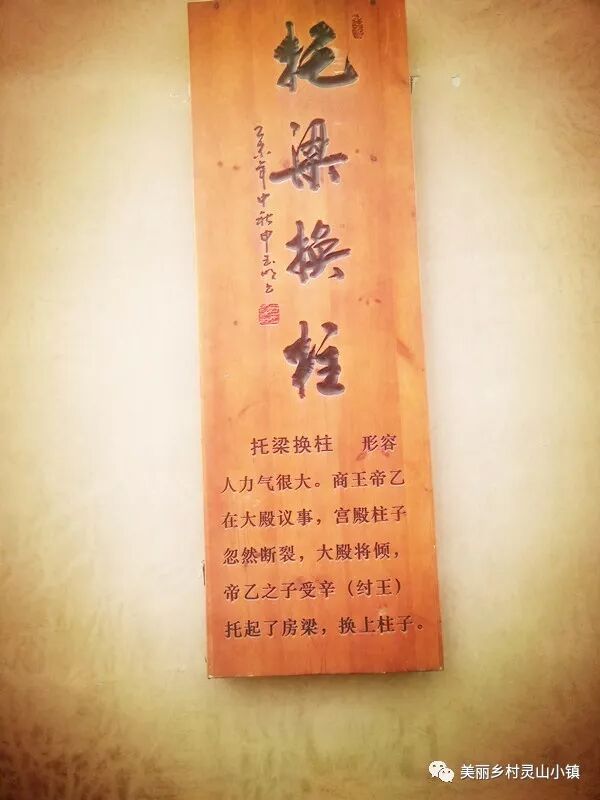 托梁换柱
乙未年中秋申玉明书
托梁换柱 形容
人力气很大。商王帝乙
在大殿议事，宫殿柱子
忽然断裂，大殿将倾，
帝乙之子受辛（纣王）
托起了房梁，换上柱子。
美丽乡村灵山小镇